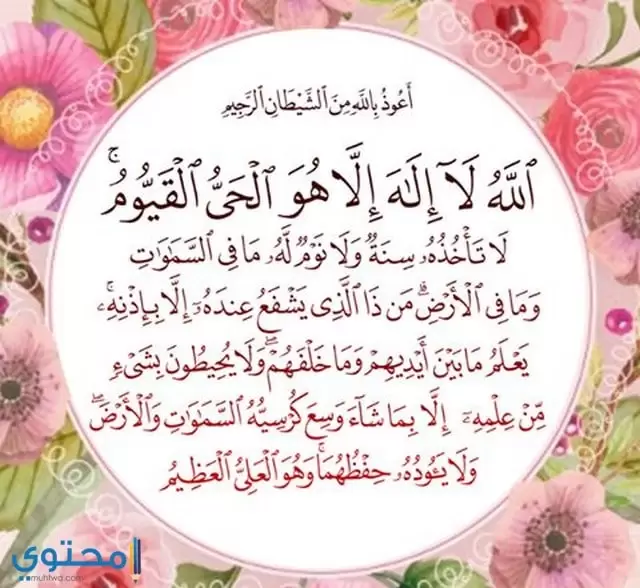 أَعُوذُ بِاللَّهِ مِنَ ٱلشَّيْطَانِ ٱلرَّجِيمِ
ٱللَّهُ لَآ إِلَٰهَ إِلَّا هُوَ ٱلْحَىُّ ٱلْقَيُّومُ ۚ
لَا تَأْخُذُهُۥ سِنَةٌ وَلَا نَوْمٌ لَّهُۥ مَا فِى ٱلسَّمَٰوَٰتِ
وَمَا فِى ٱلْأَرْضِ ۗ مَن ذَا ٱلَّذِى يَشْفَعُ عِندَهُۥٓ إِلَّا بِإِذْنِهِۦ ۚ
يَعْلَمُ مَا بَيْنَ أَيْدِيهِمْ وَمَا خَلْفَهُمْ ۖ وَلَا يُحِيطُونَ بِشَىْءٍ
مِّنْ عِلْمِهِۦٓ إِلَّا بِمَا شَآءَ وَسِعَ كُرْسِيُّهُ ٱلسَّمَٰوَٰتِ وَٱلْأَرْضَ ۖ
وَلَا يَـُٔودُهُۥ حِفْظُهُمَا ۚ وَهُوَ ٱلْعَلِىُّ ٱلْعَظِيمُ
محتوى
muhtwa.com